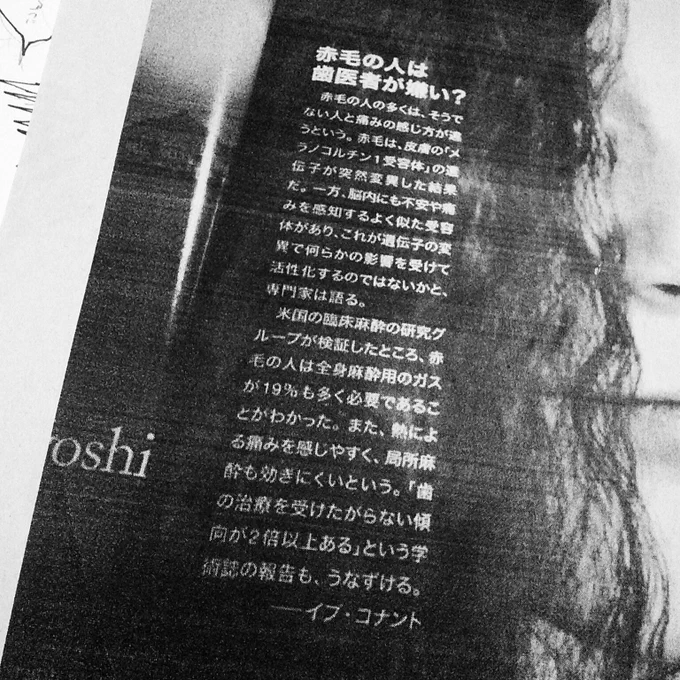 赤毛の人は
歯医者が嫌い?
赤毛の人の多くは、そうで
ない人と痛みの感じ方が違
うという。赤毛は、皮膚の「メ
ラノコルチン1受容体」の遺
伝子が突然変異した結果
だ。一方、脳内にも不安や痛
みを感知するよく似た受容
体があり、これが遺伝子の変
異で何らかの影響を受けて
活性化するのではないかと、
専門家は語る。
米国の臨床麻酔の研究グ
ループが検証したところ、赤
毛の人は全身麻酔用のガス
が19%も多く必要であるこ
とがわかった。また、熱によ
る痛みを感じやすく、局所麻
酔も効きにくいという。「歯
の治療を受けたがらない傾
向が2倍以上ある」という学
術誌の報告も、うなずける。
──イブ・コナント
roshi